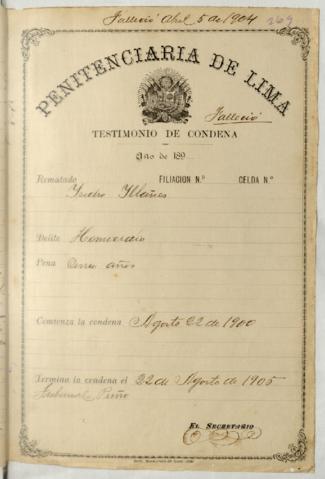 Falleció Abril 5 de 1904
269
PENITENCIARIA DE LIMA
Falleció
TESTIMONIO DE CONDENA
Año de 189
Rematado FILIACION N.º CELDA N.º
Isidro Illánes
Delito Homicidio
Pena Cinco años
Comienza la condena Agosto 22 de 1900
Termina la condena el 22 de Agosto de 1905
Tribunal
EL SECRETARIO